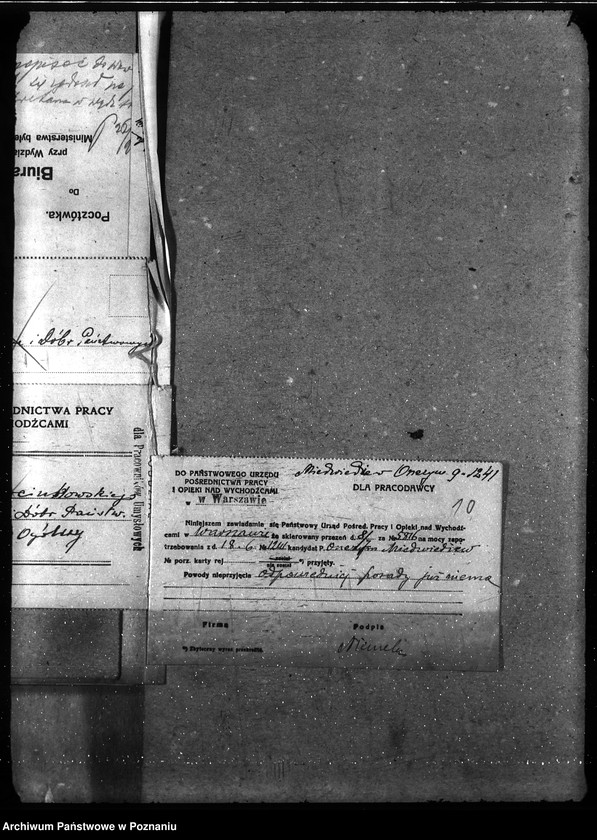 Pocztówka.
Do
Biura
przy Wydzia
Ministerstwa byłe
i Dóbr Państwowych
DNICTWA PRACY
ODŹCAMI
i Dóbr Państw.
Ogólny
dla Pracowników Umysłowych
Miedwiediew Onezym 9-1241
DO PAŃSTWOWEGO URZĘDU
POŚREDNICTWA PRACY
I OPIEKI NAD WYCHODŹCAMI
w Warszawie
DLA PRACODAWCY
10
Niniejszem zawiadamia się Państwowy Urząd Pośred. Pracy i Opieki nad Wychodź-
cami w Warszawie że skierowany przezeń d. za № 5816 na mocy zapo-
trzebowania z d. 18.6. № 1241 kandydat p. Onezym Miedwiediew
№ porz. karty rej został
nie został *) przyjęty.
Powody nieprzyjęcia odpowiedniej posady już niema
Firma Podpis
*) Zbyteczny wyraz przekreślić.
Archiwum Państwowe w Poznaniu